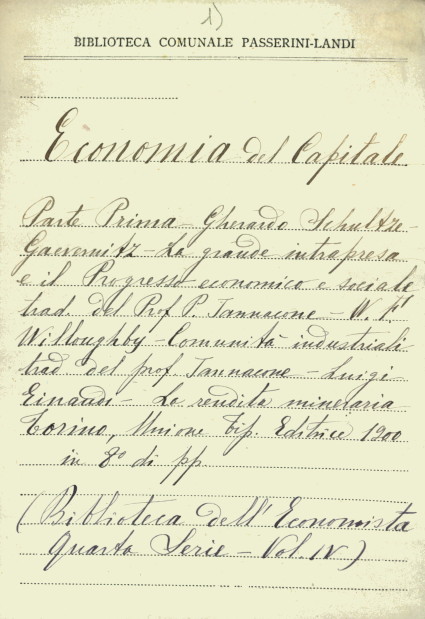 1)
BIBLIOTECA COMUNALE PASSERINI-LANDI
Economia del Capitale
Parte Prima - Gherardo Schultze-
Gaevernitz - La grande intrapresa
e il Progresso economico e sociale
trad. del Prof P. Jannacone - W. F.
Willoughby - Comunità industriali
trad del prof. Jannacone - Luigi
Einaudi - La rendita mineraria
Torino, Unione Tip. Editrice 1900
in 8° di pp
(Biblioteca dell'Economista
Quarta Serie - Vol. IV)